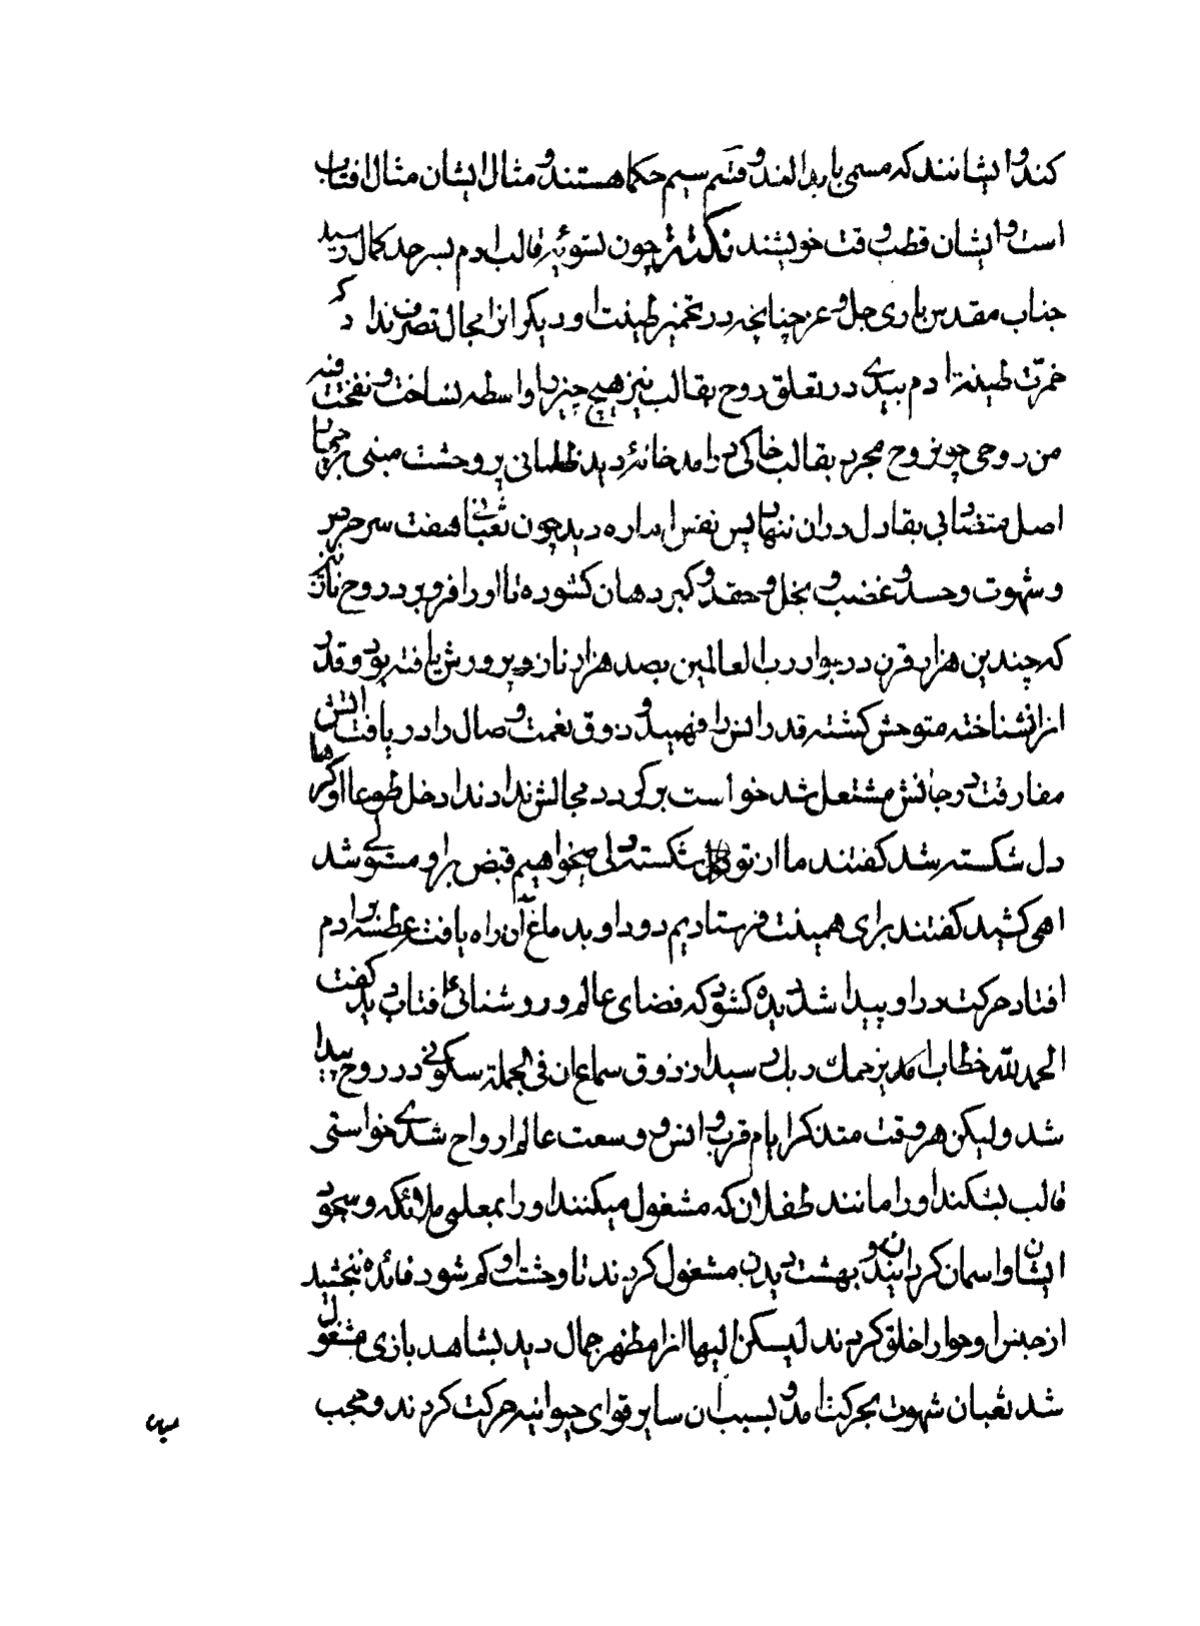 کند و ایشانند که مسمی بابدالند و قسم سیم حکما هستند و مثال ایشان مثال افتاب
است و ایشان قطب وقت خویشند نکته چون تسویه قالب ادم بسر حد کمال رسید
جناب مقدس باری جل و عز چنانچه در تخمیر طینت او دیگرانرا مجال تصرف نداد که
خمرت طینة ادم بیدی در تعلق روح بقالب نیز هیچ چیز را واسطه نساخت و نفخت فیه
من روحی چون روح مجرد بقالب خاکی درامد خانهٔ دید ظلمانی پر وحشت مبنی بر چهار
اصل متضاد بی بقا دل دران ننهاد پس نفس اماره دید چون ثعبانی هفت سر حرص
و شهوت و حسد و غضب و بخل و حقد و کبر دهان کشوده تا او را فرو برد روح نازنین
که چندین هزار قرن در جوار رب العالمین بصد هزار ناز پرورش یافته بود و قدر
انرا نشناخته متوحش کشته قدر انس را فهمید و ذوق نعمت وصال را دریافت اتش
مفارقت در جانش مشتعل شد خواست برکردد مجالش ندادند ادخل طوعا او کرها
دل شکسته شد کفتند ما از تو دل شکستگی میخواهیم قبض بر او مستولی شد
اهی کشید کفتند برای همینت فرستادیم دود او بدماغ آن راه یافت عطسه بر ادم
افتاد حرکت در او پیدا شد دیده کشود که فضای عالم و روشنائی افتاب دید کفت
الحمد لله خطاب امد یرحمک ربک بسید از ذوق سماع ان فی الجمله سکونی در روح پیدا
شد ولیکن هر وقت متذکر ایام قرب و انس و وسعت عالم ارواح شدی خواستی
قالب بشکند او را مانند طفلان که مشغول میکنند او را بمعلمی ملائکه و سجود
ایشان و اسمان کردانیدن و بهشت دیدن مشغول کردند تا وحشت او کم شود فائده نبخشید
از جنس او حوا را خلق کردند لیسکن الیها انرا مظهر جمال دید بشاهد بازی مشغول
شد ثعبان شهوت بحرکت امد و بسبب ان سایر قوای حیوانیه حرکت کردند و حجب